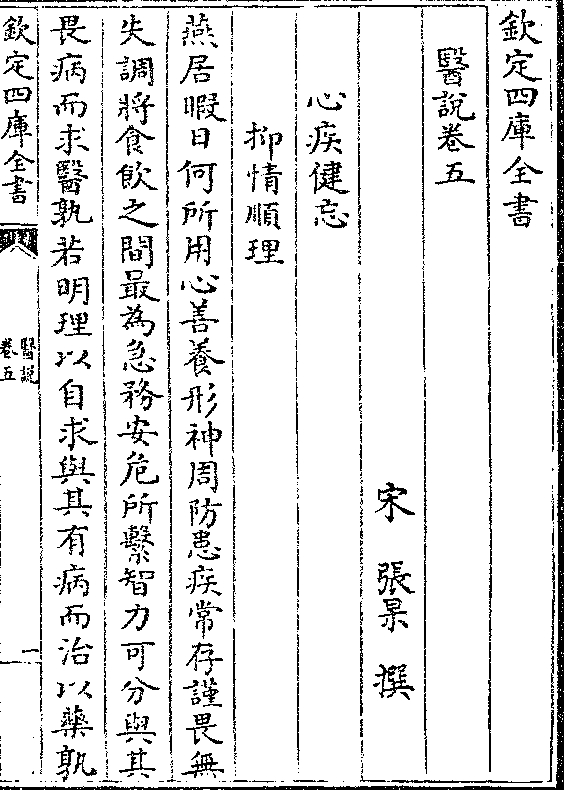 欽定四庫全書
醫說卷五
宋 張杲 撰
心疾健忘
抑情順理
燕居暇日何所用心善養形神周防患疾常存謹畏無
失調將食飲之間最為急務安危所繫智力可分與其
畏病而求醫孰若明理以自求與其有病而治以藥孰
欽定四庫全書
醫說
卷五
一